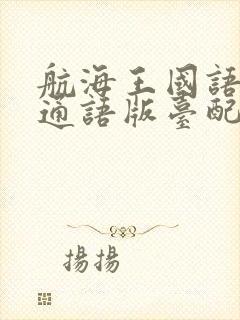 航海王國語
通語版臺配
揚揚